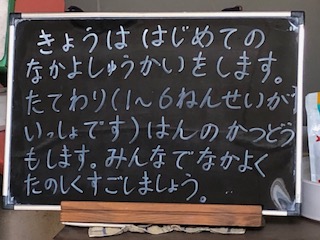 きょうは はじめての
なかよしゅうかいをします。
たてわり(1〜6ねんせいが
いっしょです)はんの かつどう
もします。みんなでなかよく
たのしくすごしましょう。